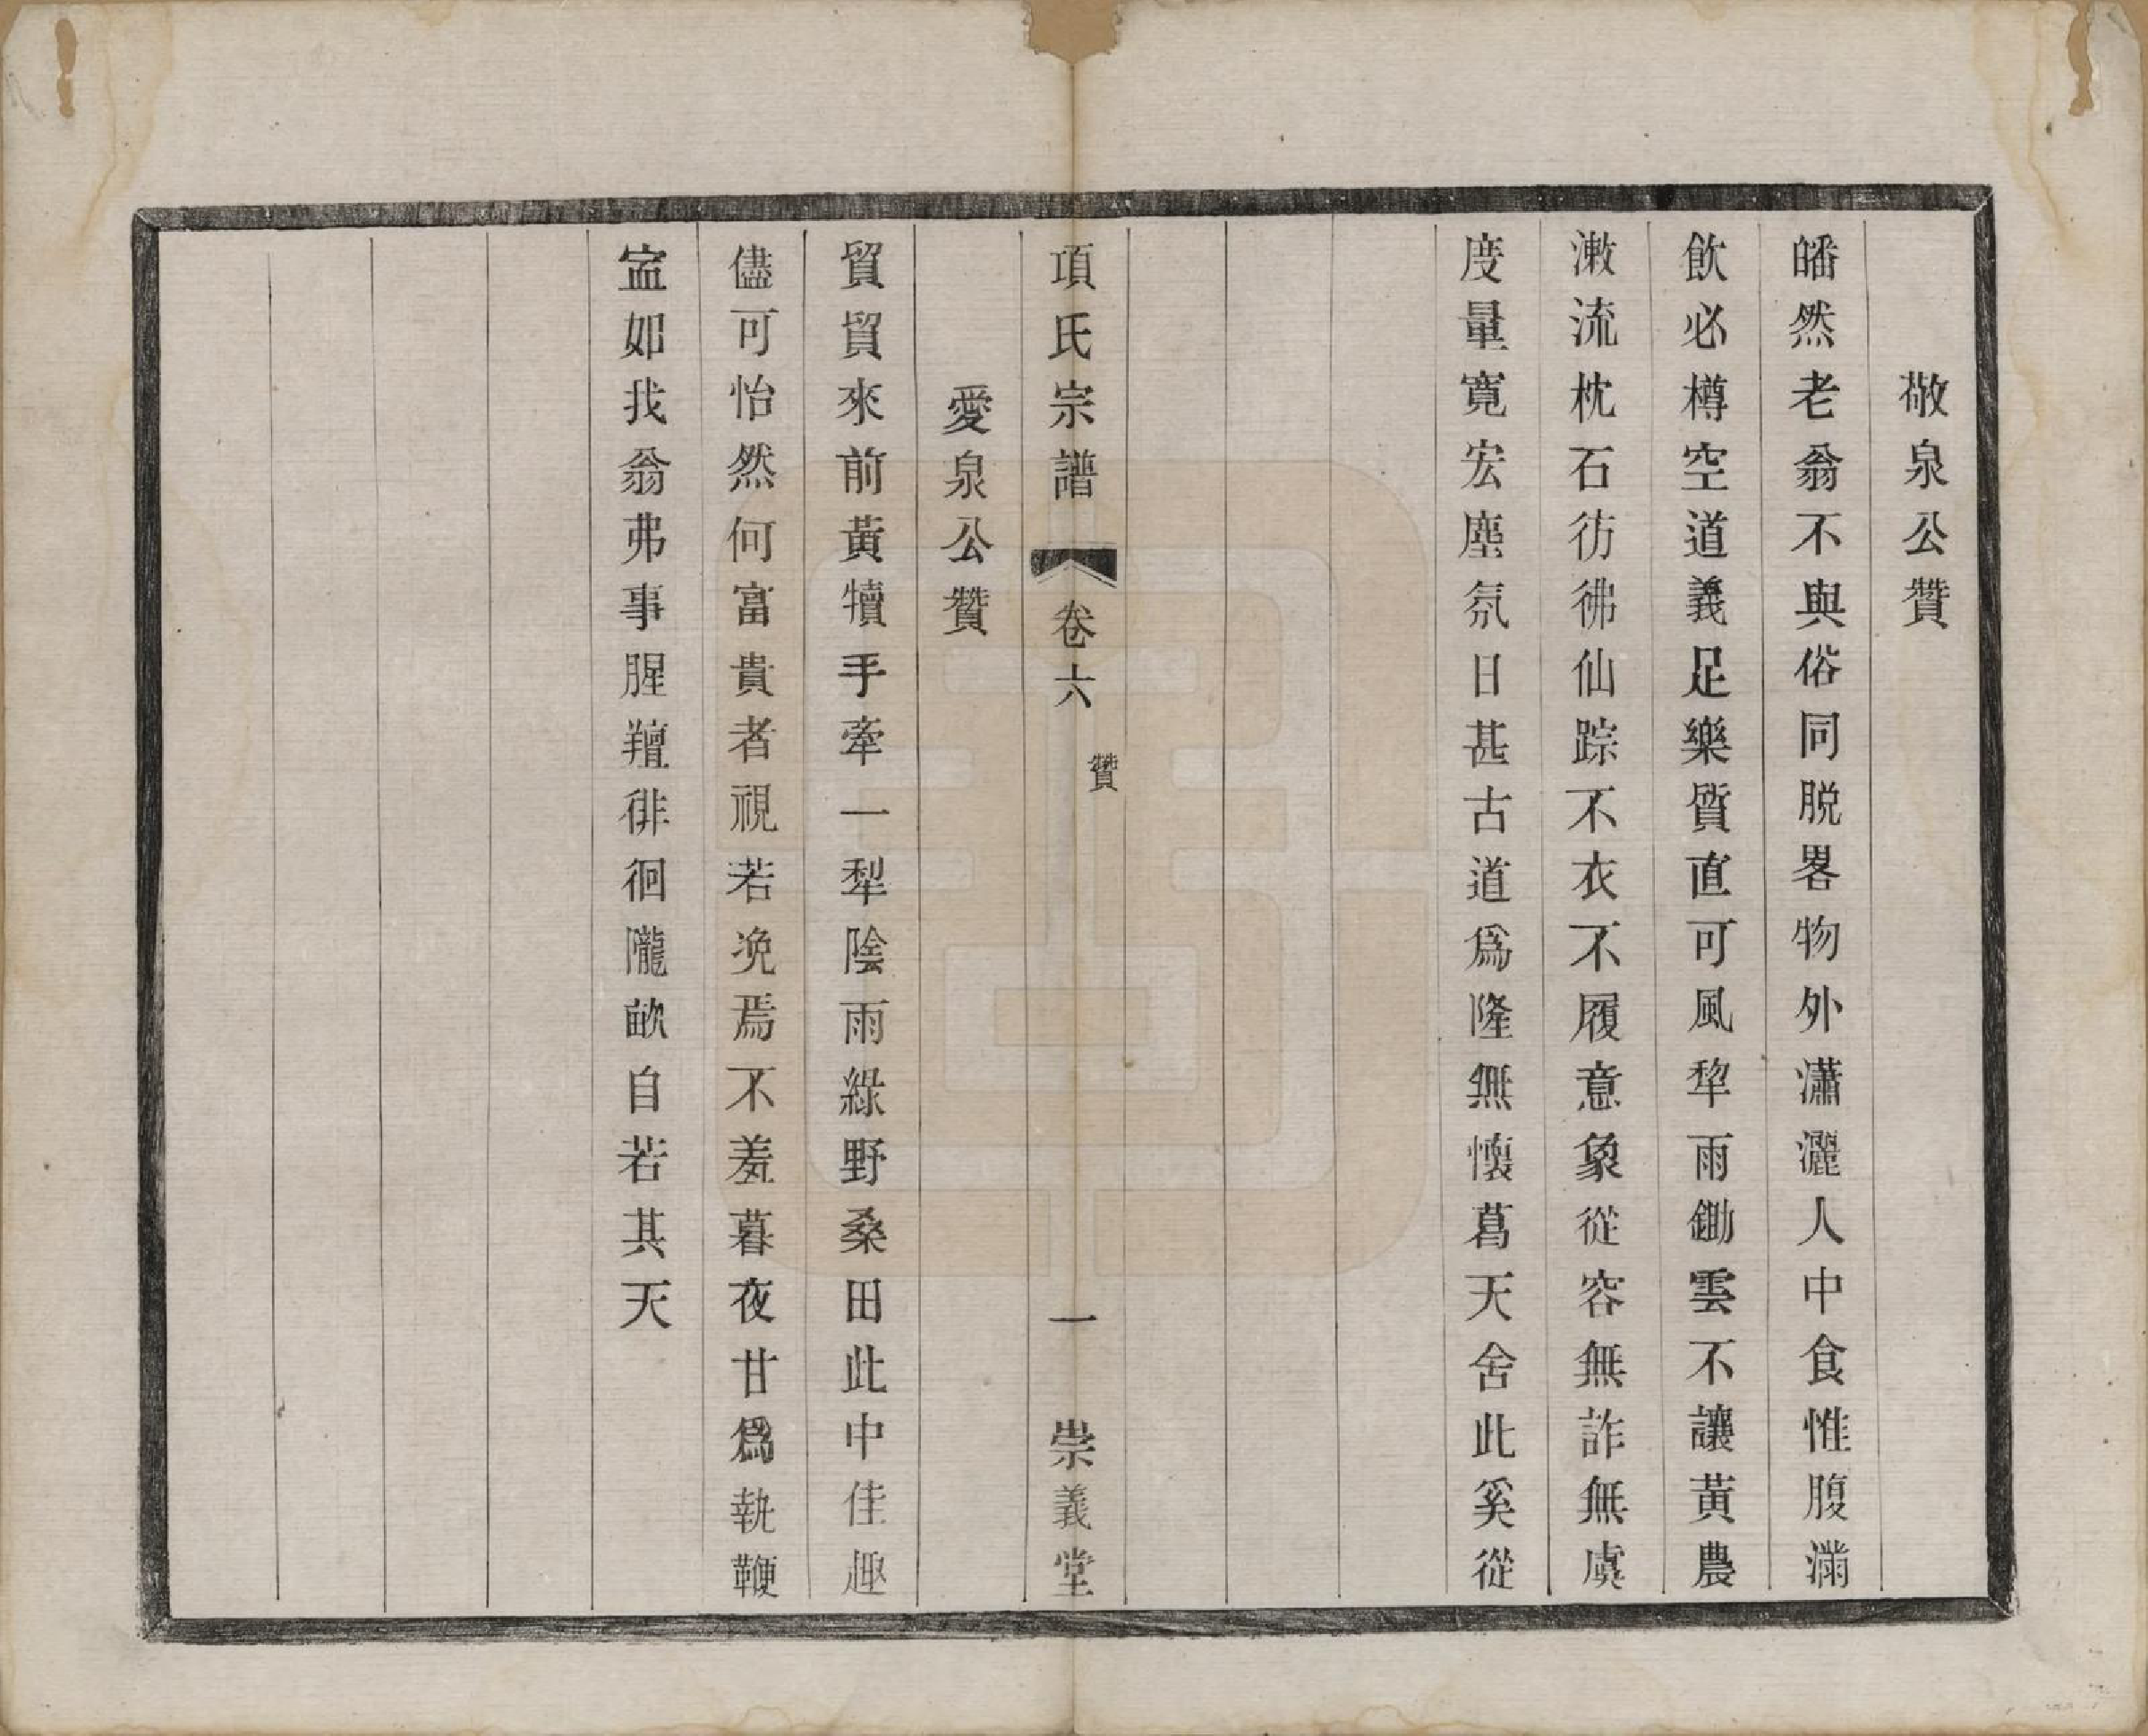 敬泉公贊
皤然老翁不與俗同脱畧物外瀟灑人中食惟腹滿
飲必樽空道義足樂質直可風犂雨鋤雲不讓黃農
漱流枕石彷彿仙踪不衣不履意象從容無詐無虞
度量寬宏塵氛日甚古道爲隆無懷葛天舍此奚從
項氏宗譜 卷六 贊 一 崇義堂
愛泉公贊
貿貿來前黃犢手牽一犁陰雨綠野桑田此中佳趣
儘可怡然何富貴者視若浼焉不羞暮夜甘爲執鞭
寍如我翁弗事腥羶徘徊隴畝自若其天